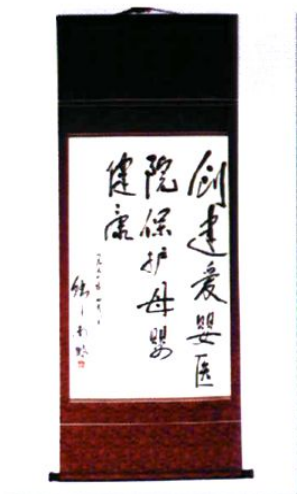 创建爱婴医
院保护母婴
健康